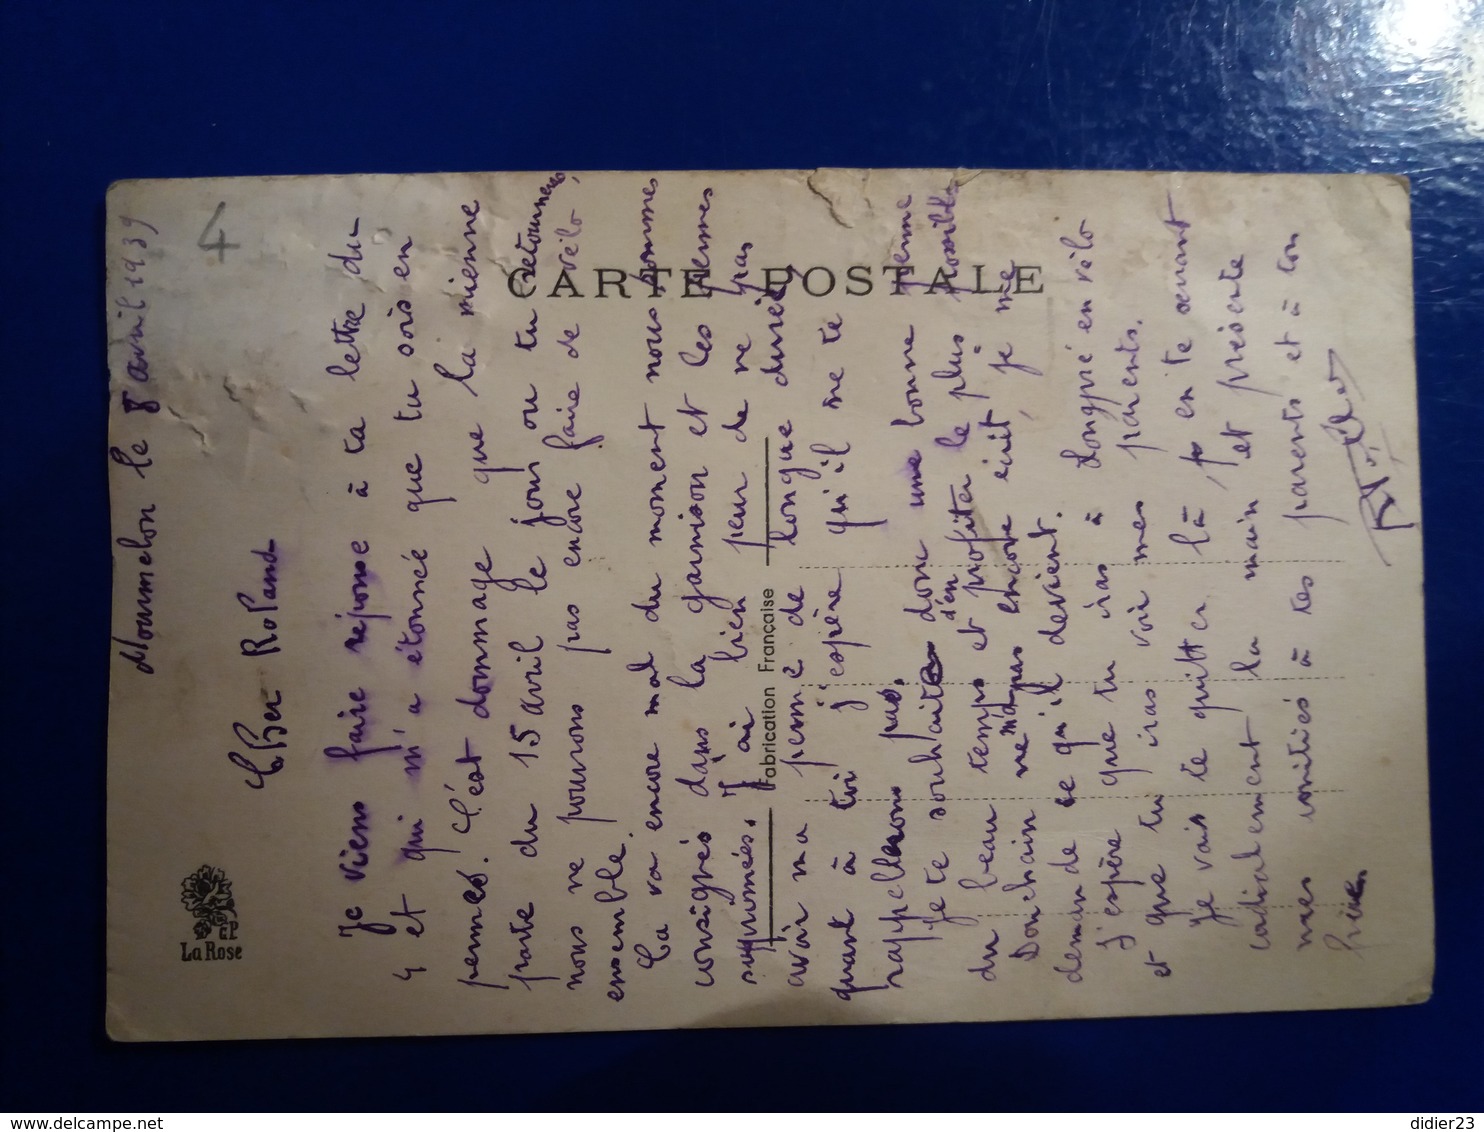 Mourmelon le 8 avril 1939
4
Cher Roland
Je viens faire réponse à ta lettre du
4 et qui m'a étonné que tu sois en
permes. C'est dommage que la mienne
parte du 15 avril le jour ou tu retournes,
nous ne pourrons pas encore faire de vélo
ensemble.
Ca va encore mal du moment nous sommes
consignés dans la garnison et les permes
supprimées. J'ai bien peur de ne pas
avoir ma perme de longue durée
quant à toi j'espère qu'il ne te
rappellerons pas.
Je te souhaite donc une bonne perme
du beau temps et d'en profiter le plus possible
Donchain ne m'a pas encore écrit, je me
demande ce qu'il devient.
J'espère que tu iras à Longpré en vélo
et que tu iras voir mes parents.
Je vais te quitter là, en te serrant
cordialement la main et présente
mes amitiés à tes parents et à ton
frère
CARTE POSTALE
Fabrication Française
GP
La Rose
delcampe.net
didier23